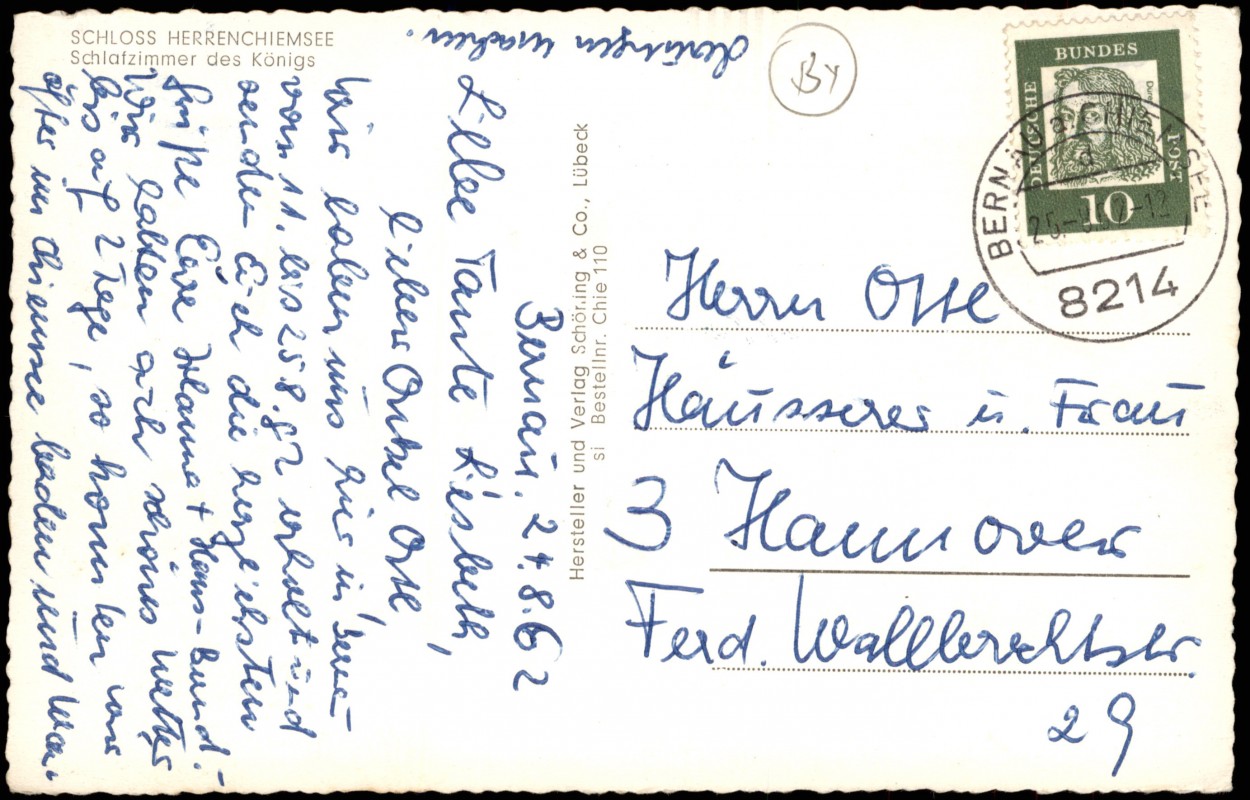 SCHLOSS HERRENCHIEMSEE
Schlafzimmer des Königs
Bernau. 24.8.62
Liebe Tante Liesbeth,
lieber Onkel Otte,
Wir haben uns hier in
vom 11. bis 25.8.62 erholt und
senden Euch die herzlichsten
Grüße Eure Johanna + Hans-
Wir hatten auch schönes Wetter
bis auf 2 Tage, so konnten wir
öfter im Chiemsee baden und Wan-
derungen machen.
By
Hersteller und Verlag Schöning & Co., Lübeck
si Bestellnr. Chie 110
DEUTSCHE BUNDESPOST
10
BERNAU a. CHIEMSEE
d
25.-8.62-12
8214
Herrn Otte
Häusserer u. Frau
3 Hannover
Ferd. Wallbrechtstr.
29